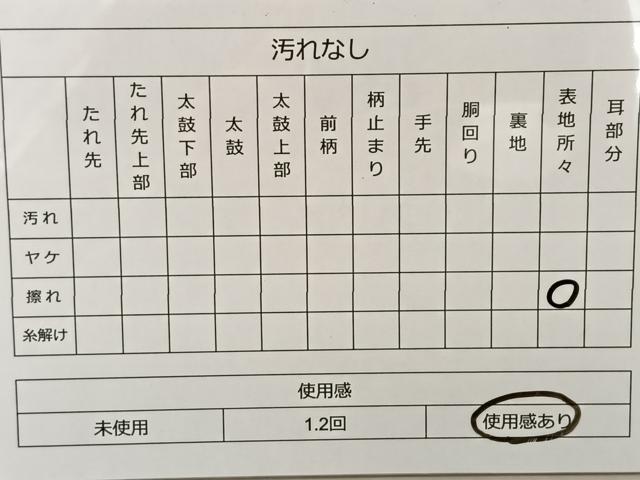 汚れなし
たれ先 たれ先上部 太鼓下部 太鼓 太鼓上部 前柄 柄止まり 手先 胴回り 裏地 表地所々 耳部分
汚れ
ヤケ
擦れ ○
糸解け
使用感
未使用 1.2回 使用感あり